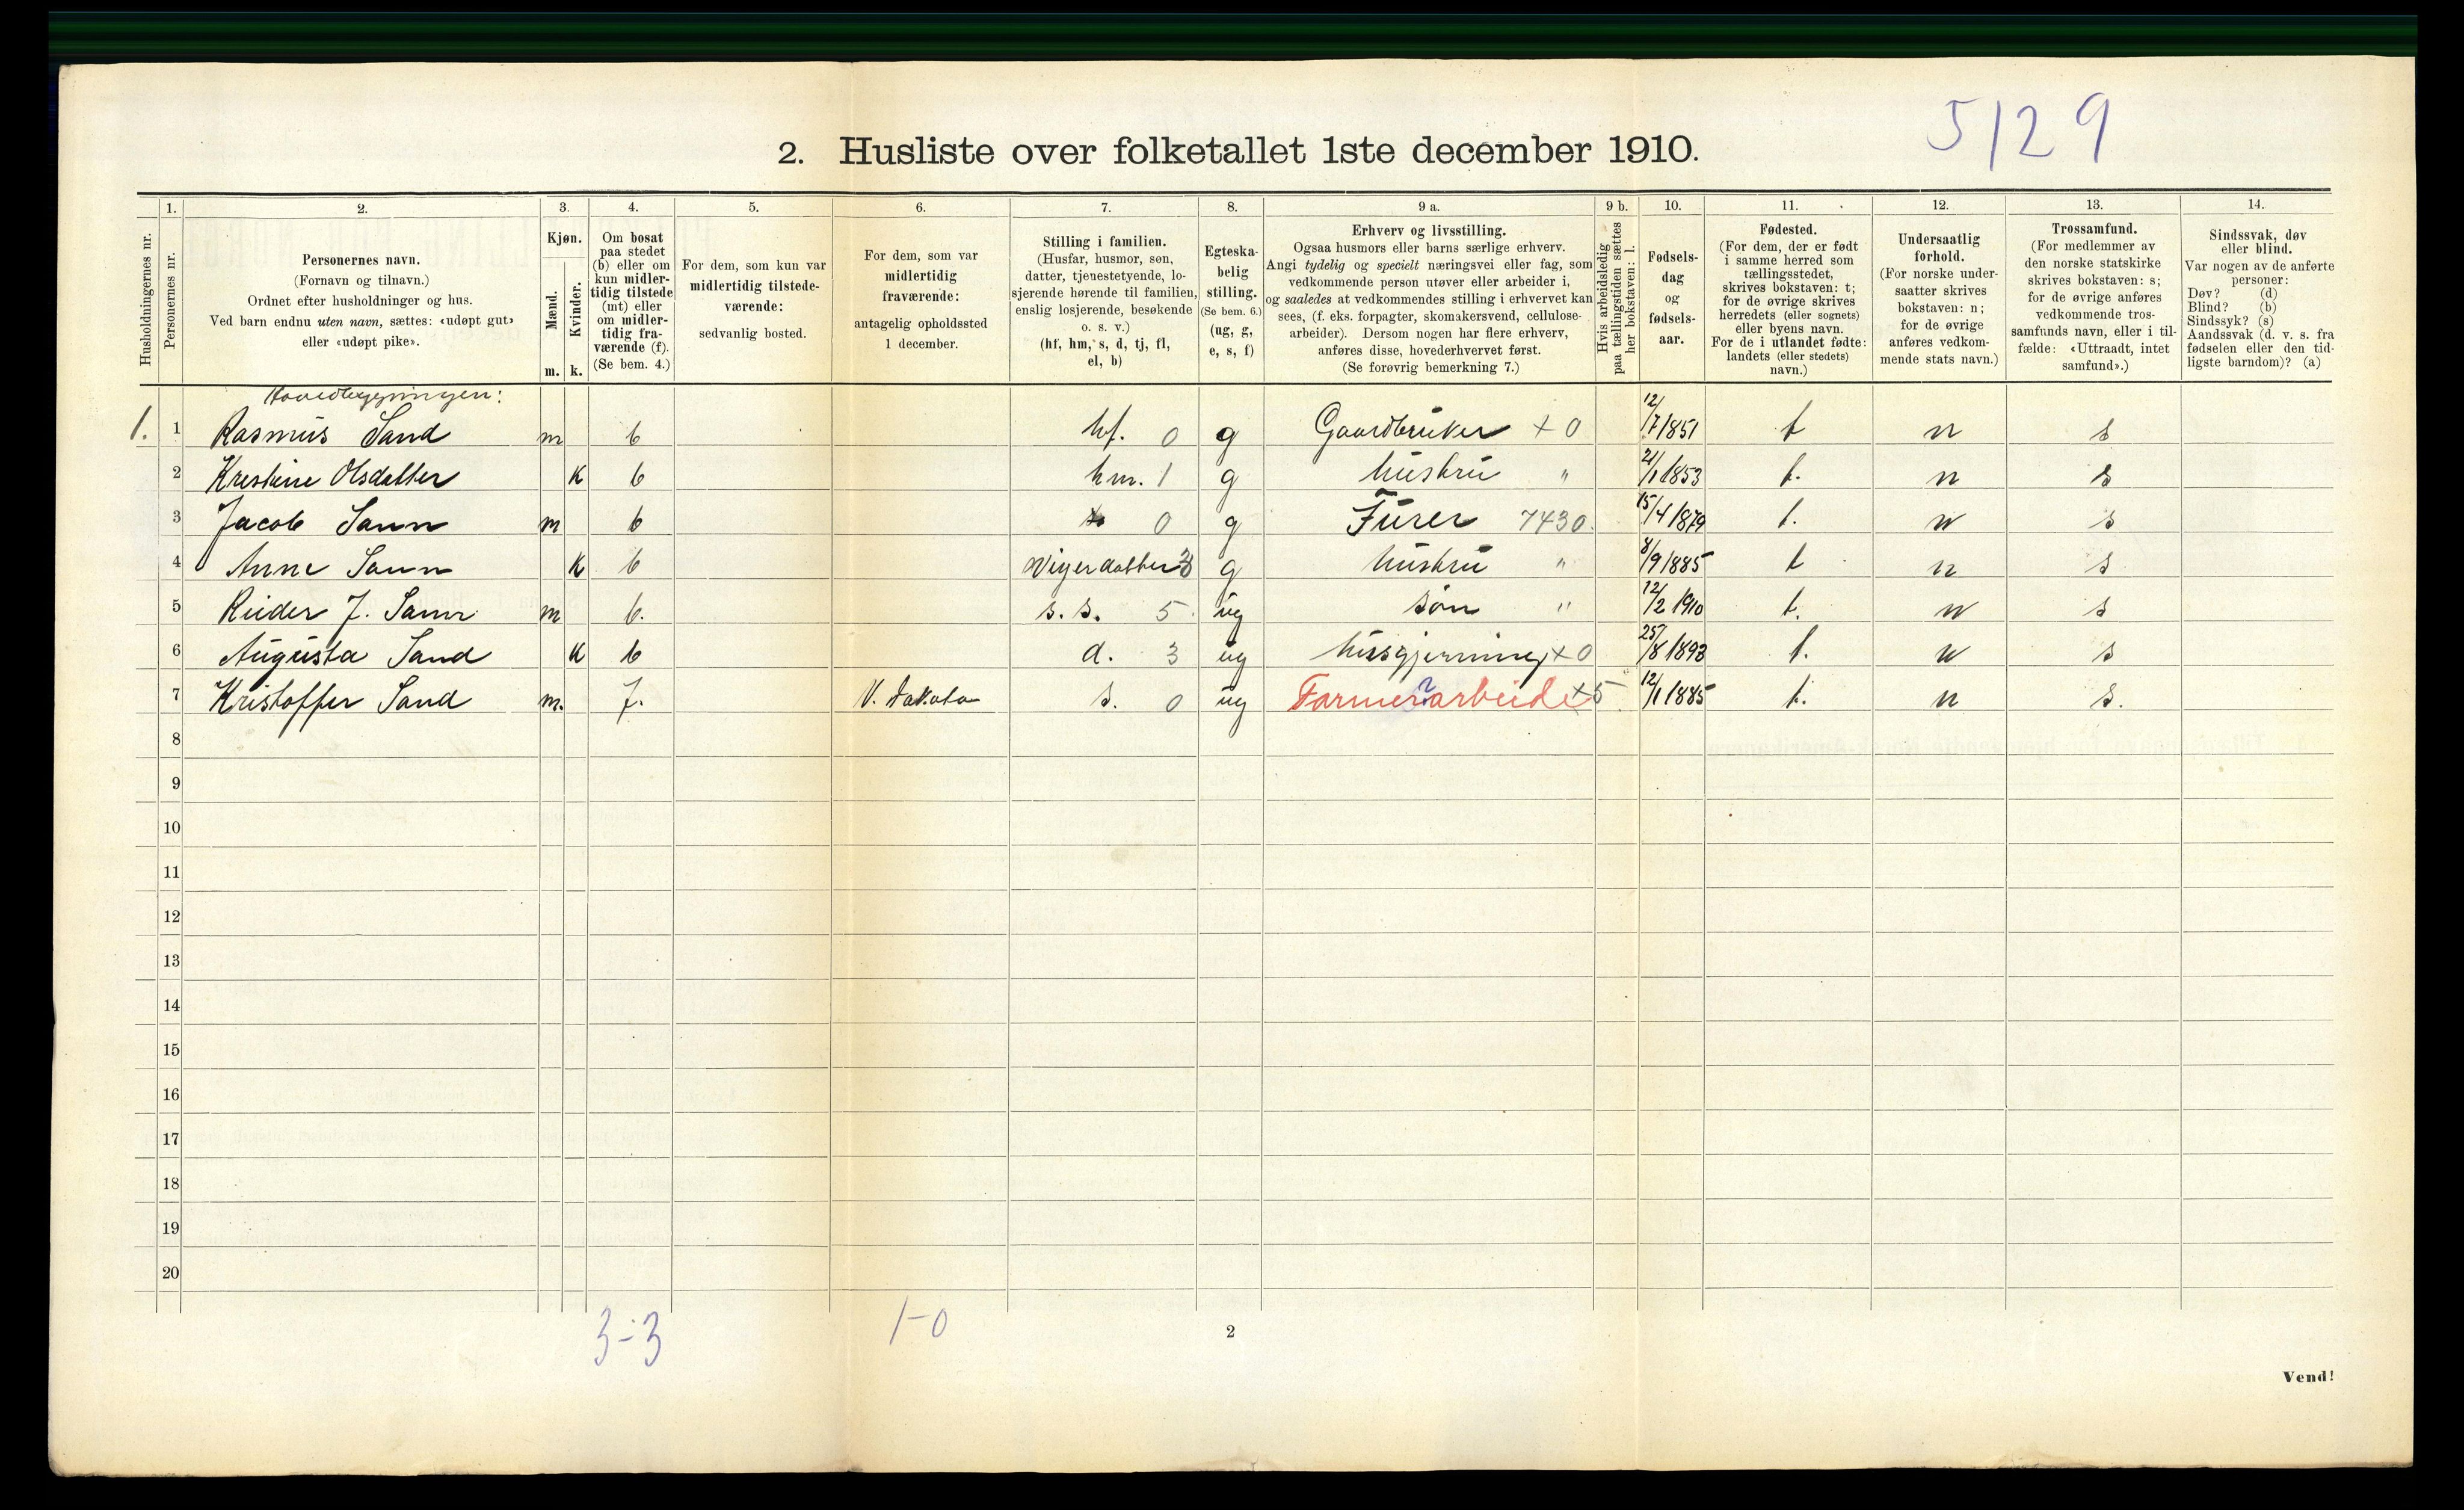 5129
2. Husliste over folketallet 1ste december 1910.
Husholdningernes nr.
1. Personernes nr.
2. Personernes navn.
(Fornavn og tilnavn.)
Ordnet efter husholdninger og hus.
Ved barn endnu uten navn, sættes: «udøpt gut»
eller «udøpt pike».
3. Kjøn.
Mænd. m.
Kvinder. k.
4. Om bosat
paa stedet
(b) eller om
kun midler-
tidig tilstede
(mt) eller
om midler-
tidig fra-
værende (f).
(Se bem. 4.)
5. For dem, som kun var
midlertidig tilstede-
værende:
sedvanlig bosted.
6. For dem, som var
midlertidig
fraværende:
antagelig opholdssted
1 december.
7. Stilling i familien.
(Husfar, husmor, søn,
datter, tjenestetyende, lo-
sjerende hørende til familien,
enslig losjerende, besøkende
o. s. v.)
(hf, hm, s, d, tj, fl,
el, b)
8. Egteska-
belig
stilling.
(Se bem. 6.)
(ug, g,
e, s, f)
9 a. Erhverv og livsstilling.
Ogsaa husmors eller barns særlige erhverv.
Angi tydelig og specielt næringsvei eller fag, som
vedkommende person utøver eller arbeider i,
og saaledes at vedkommendes stilling i erhvervet kan
sees, (f. eks. forpagter, skomakersvend, cellulose-
arbeider). Dersom nogen har flere erhverv,
anføres disse, hovederhvervet først.
(Se forøvrig bemerkning 7.)
9 b. Hvis arbeidsledig
paa tællingstiden sættes
her bokstaven: l.
10. Fødsels-
dag
og
fødsels-
aar.
11. Fødested.
(For dem, der er født
i samme herred som
tællingsstedet,
skrives bokstaven: t;
for de øvrige skrives
herredets (eller sognets)
eller byens navn.
For de i utlandet fødte:
landets (eller stedets)
navn.)
12. Undersaatlig
forhold.
(For norske under-
saatter skrives
bokstaven: n;
for de øvrige
anføres vedkom-
mende stats navn.)
13. Trossamfund.
(For medlemmer av
den norske statskirke
skrives bokstaven: s;
for de øvrige anføres
vedkommende tros-
samfunds navn, eller i til-
fælde: «Uttraadt, intet
samfund».)
14. Sindssvak, døv
eller blind.
Var nogen av de anførte
personer:
Døv? (d)
Blind? (b)
Sindssyk? (s)
Aandssvak (d. v. s. fra
fødselen eller den tid-
ligste barndom)? (a)
Hovedbygningen:
1. 1 Rasmus Sand m b hf. 0 g Gaardbruker + 0 12/7 1851 t n s
2 Kristine Olsdatter K b hm. 1 g hustru " 21/1 1853 t. n s
3 Jacob Sann m b s 0 g Furer 7430. 15/4 1879 t. n s
4 Anne Sann K b Vigerdatter 3 g hustru " 8/9 1885 t n s
5 Reider J. Sann m b. s. s. 5 ug søn " 12/2 1910 t. n s
6 Augusta Sand K b d. 3 ug husgjerning + 0 25/8 1893 t. n s
7 Kristoffer Sand m. f. V. Dakota s. 0 ug Farmerarbeide ? + 5 12/1 1885 t. n s.
8
9
10
11
12
13
14
15
16
17
18
19
20
3-3 1-0
2
Vend!